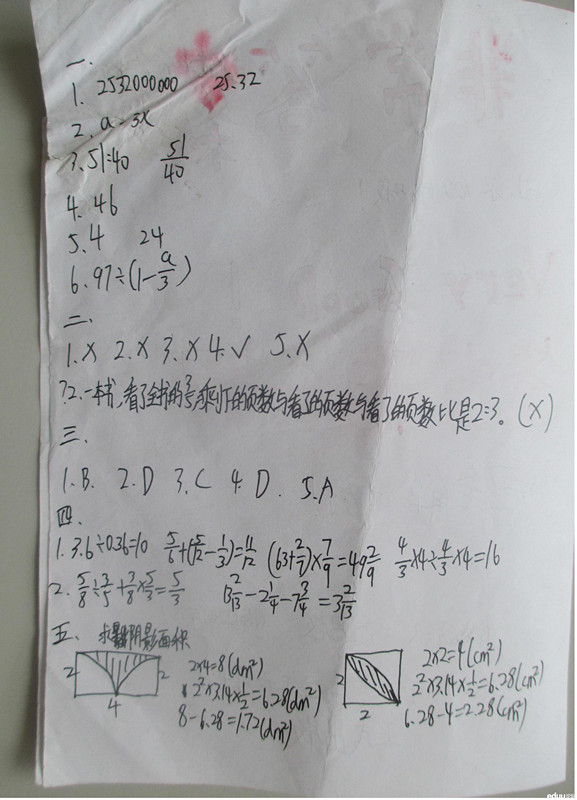 一.
1. 2532000000 25.32
2. a=3x
3. 51:40 51/40
4. 46
5. 4 24
6. 97÷(1-a/3)
二.
1.X 2.X 3.X 4.√ 5.X
?2.一本书,看了全书的 剩下的页数与看了的页数与看了的页数比是2:3。(X)
三.
1.B. 2.D 3.C 4.D. 5.A
四.
1. 3.6÷0.36=10 5/6+(5/12-1/3)=11/12 (63+2/7)×7/9=49 2/9 4/3×4÷4/3×4=16
2. 5/8÷3/5+3/8×5/3=5/3 13 2/13-2 1/4-7 3/4=3 2/13
五. 求 阴影面积
2 2 4
2×4=8(dm²)
2²×3.14×1/2=6.28(dm²)
8-6.28=1.72(dm²)
2 2
2×2=4(cm²)
2²×3.14×1/2=6.28(cm²)
6.28-4=2.28(cm²)
eduu